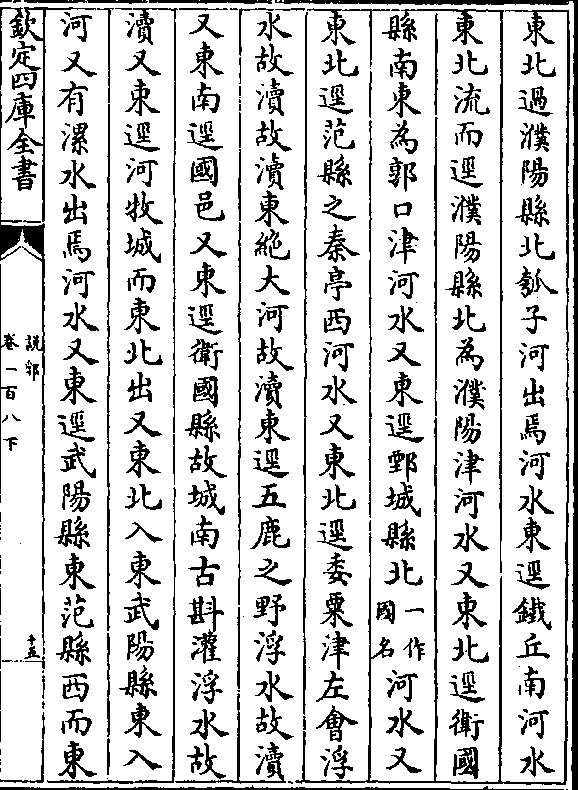 東北過濮陽縣北瓠子河出焉河水東逕鐵丘南河水
東北流而逕濮陽縣北為濮陽津河水又東北逕衛國
縣南東為郭口津河水又東逕鄄城縣北一作國名河水又
東北逕范縣之秦亭西河水又東北逕委粟津左會浮
水故瀆故瀆東絶大河故瀆東逕五鹿之野浮水故瀆
又東南逕國邑又東逕衛國縣故城南古斟灌浮水故
瀆又東逕河牧城而東北出又東北入東武陽縣東入
河又有漯水出焉河水又東逕武陽縣東范縣西而東
欽定四庫全書
説郛
卷一百八下
十五